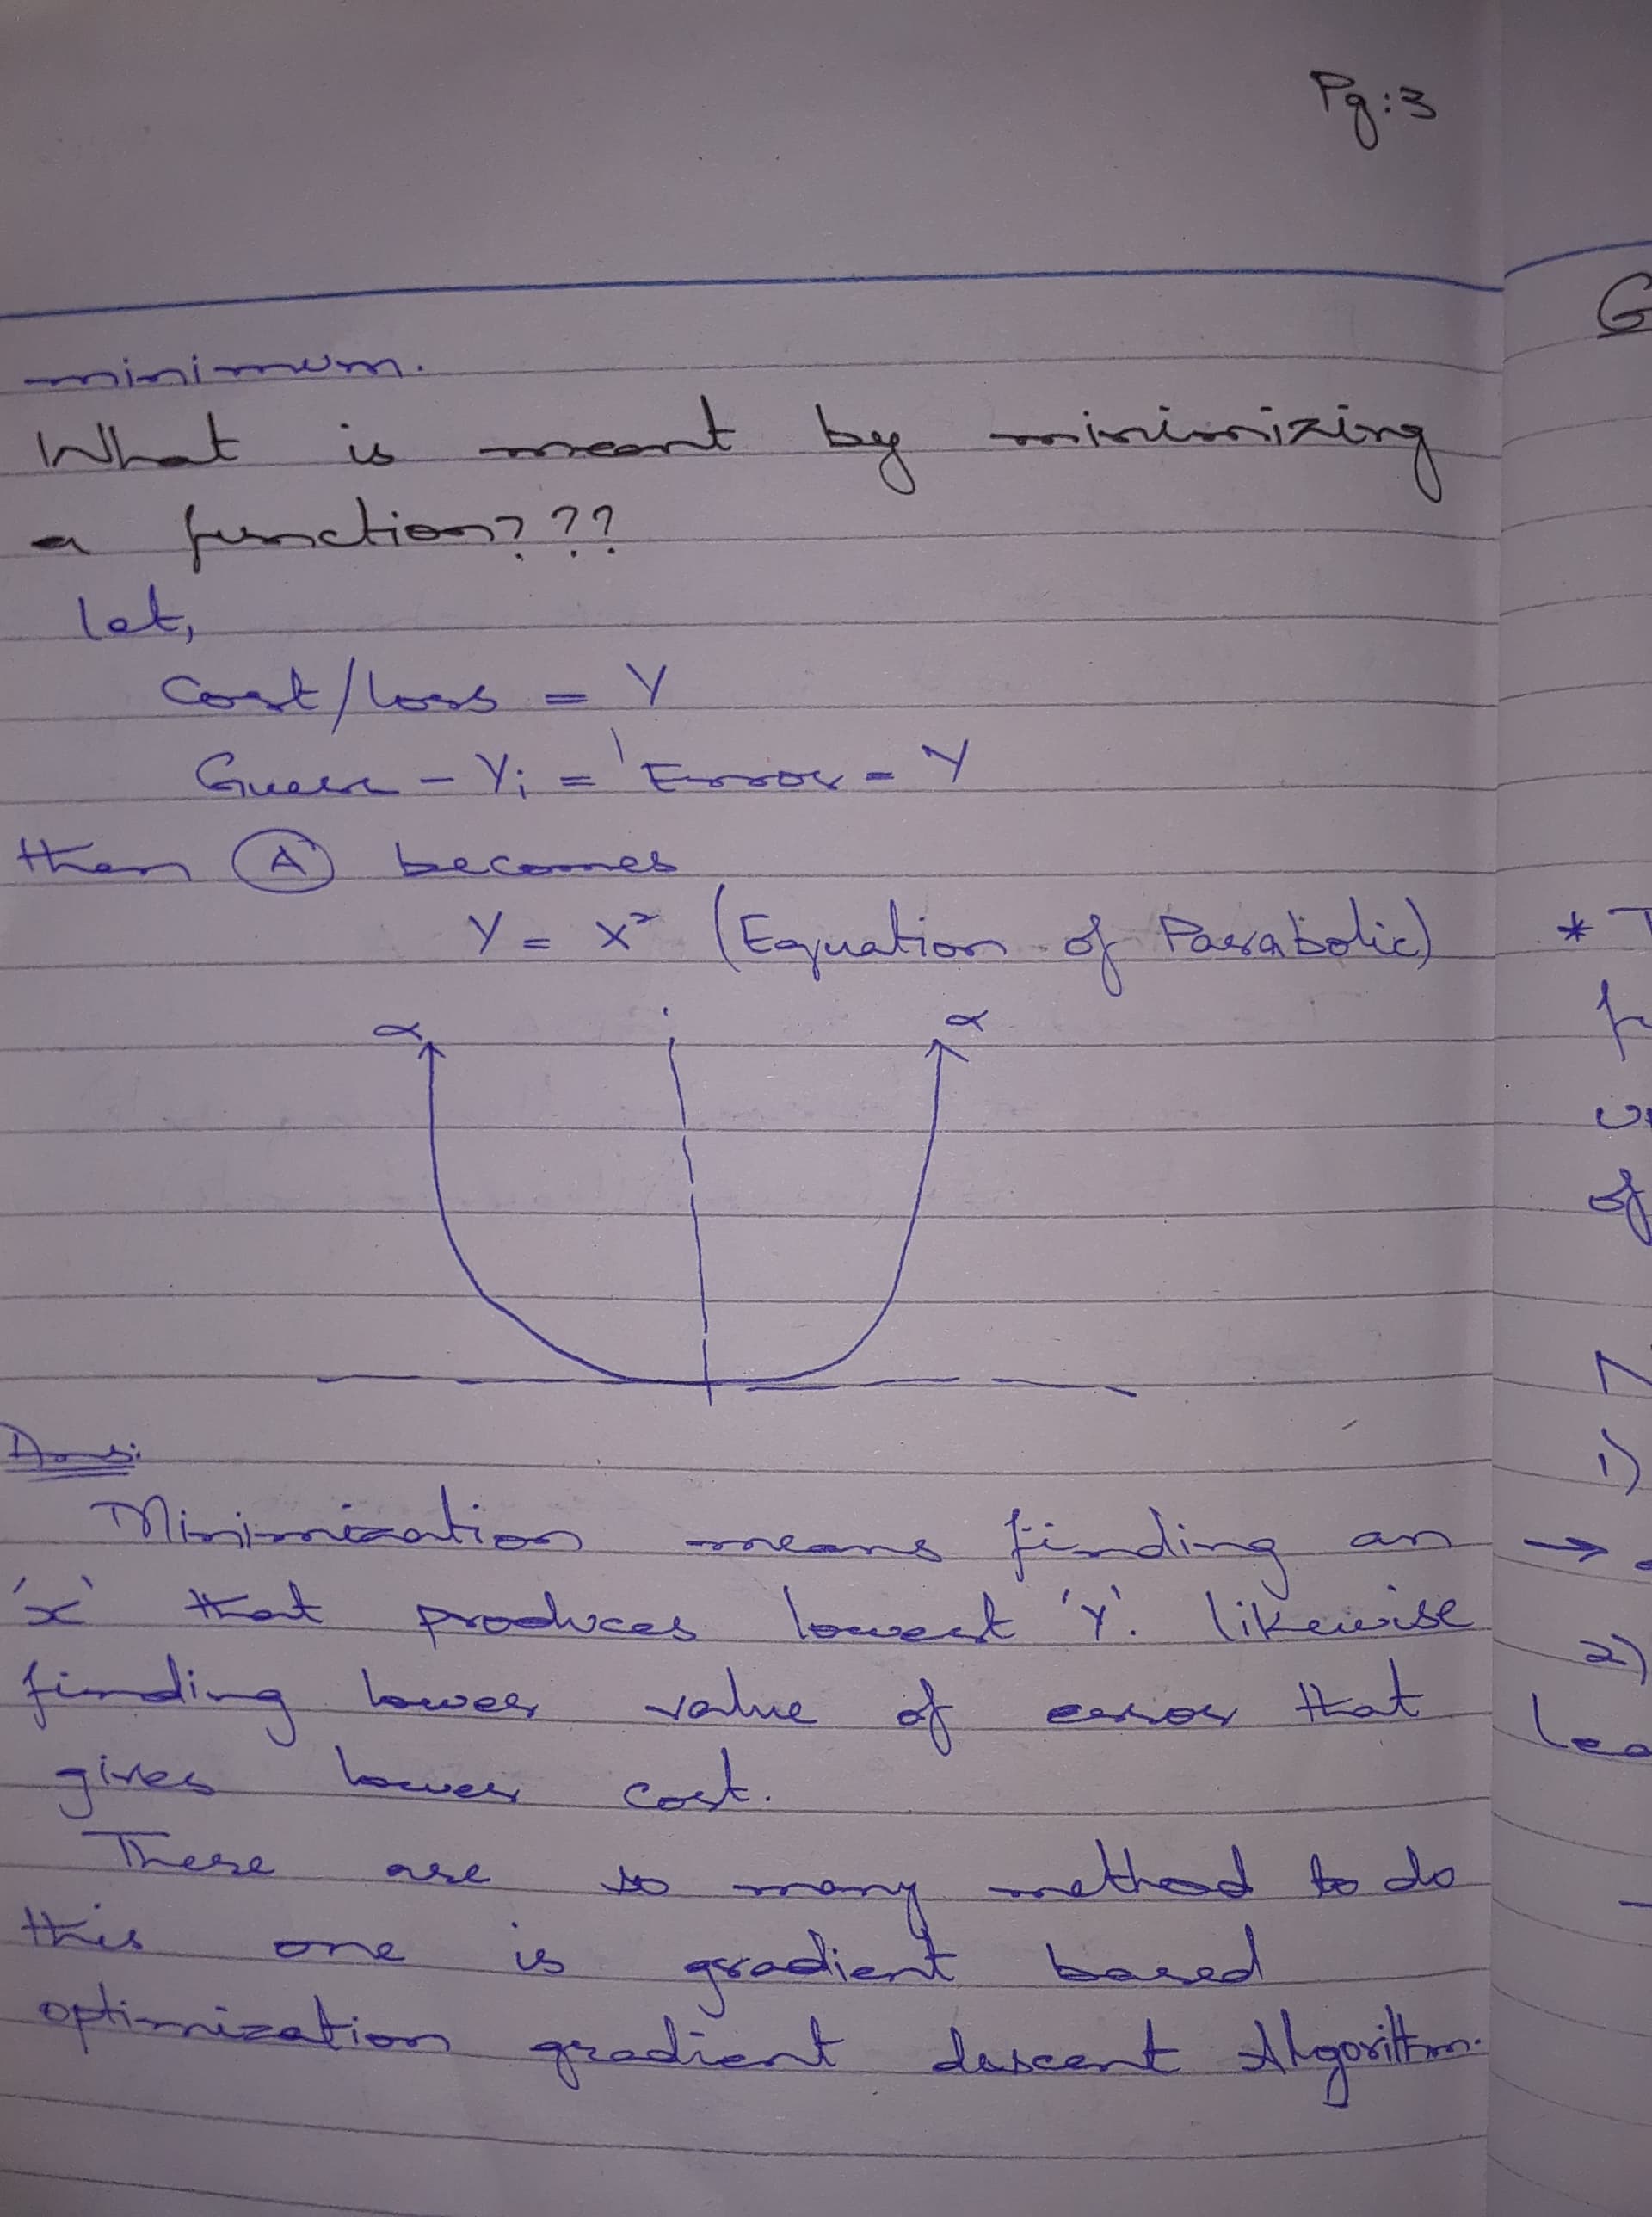 Pg:3
minimum.
What is meant by minimizing
a function???
let,
Cost/loss = Y
Guess - Yi = 'Error = Y
then (A) becomes
Y = X² (Equation of Parabolic)
α α
Ans:
Minimization means finding an
'x' that produces lowest 'Y'. likewise
finding lower value of error that
gives lower cost.
There are so many method to do
this one is gradient based
optimization gradient descent Algorithm.
G
*
of
1)
→
2)